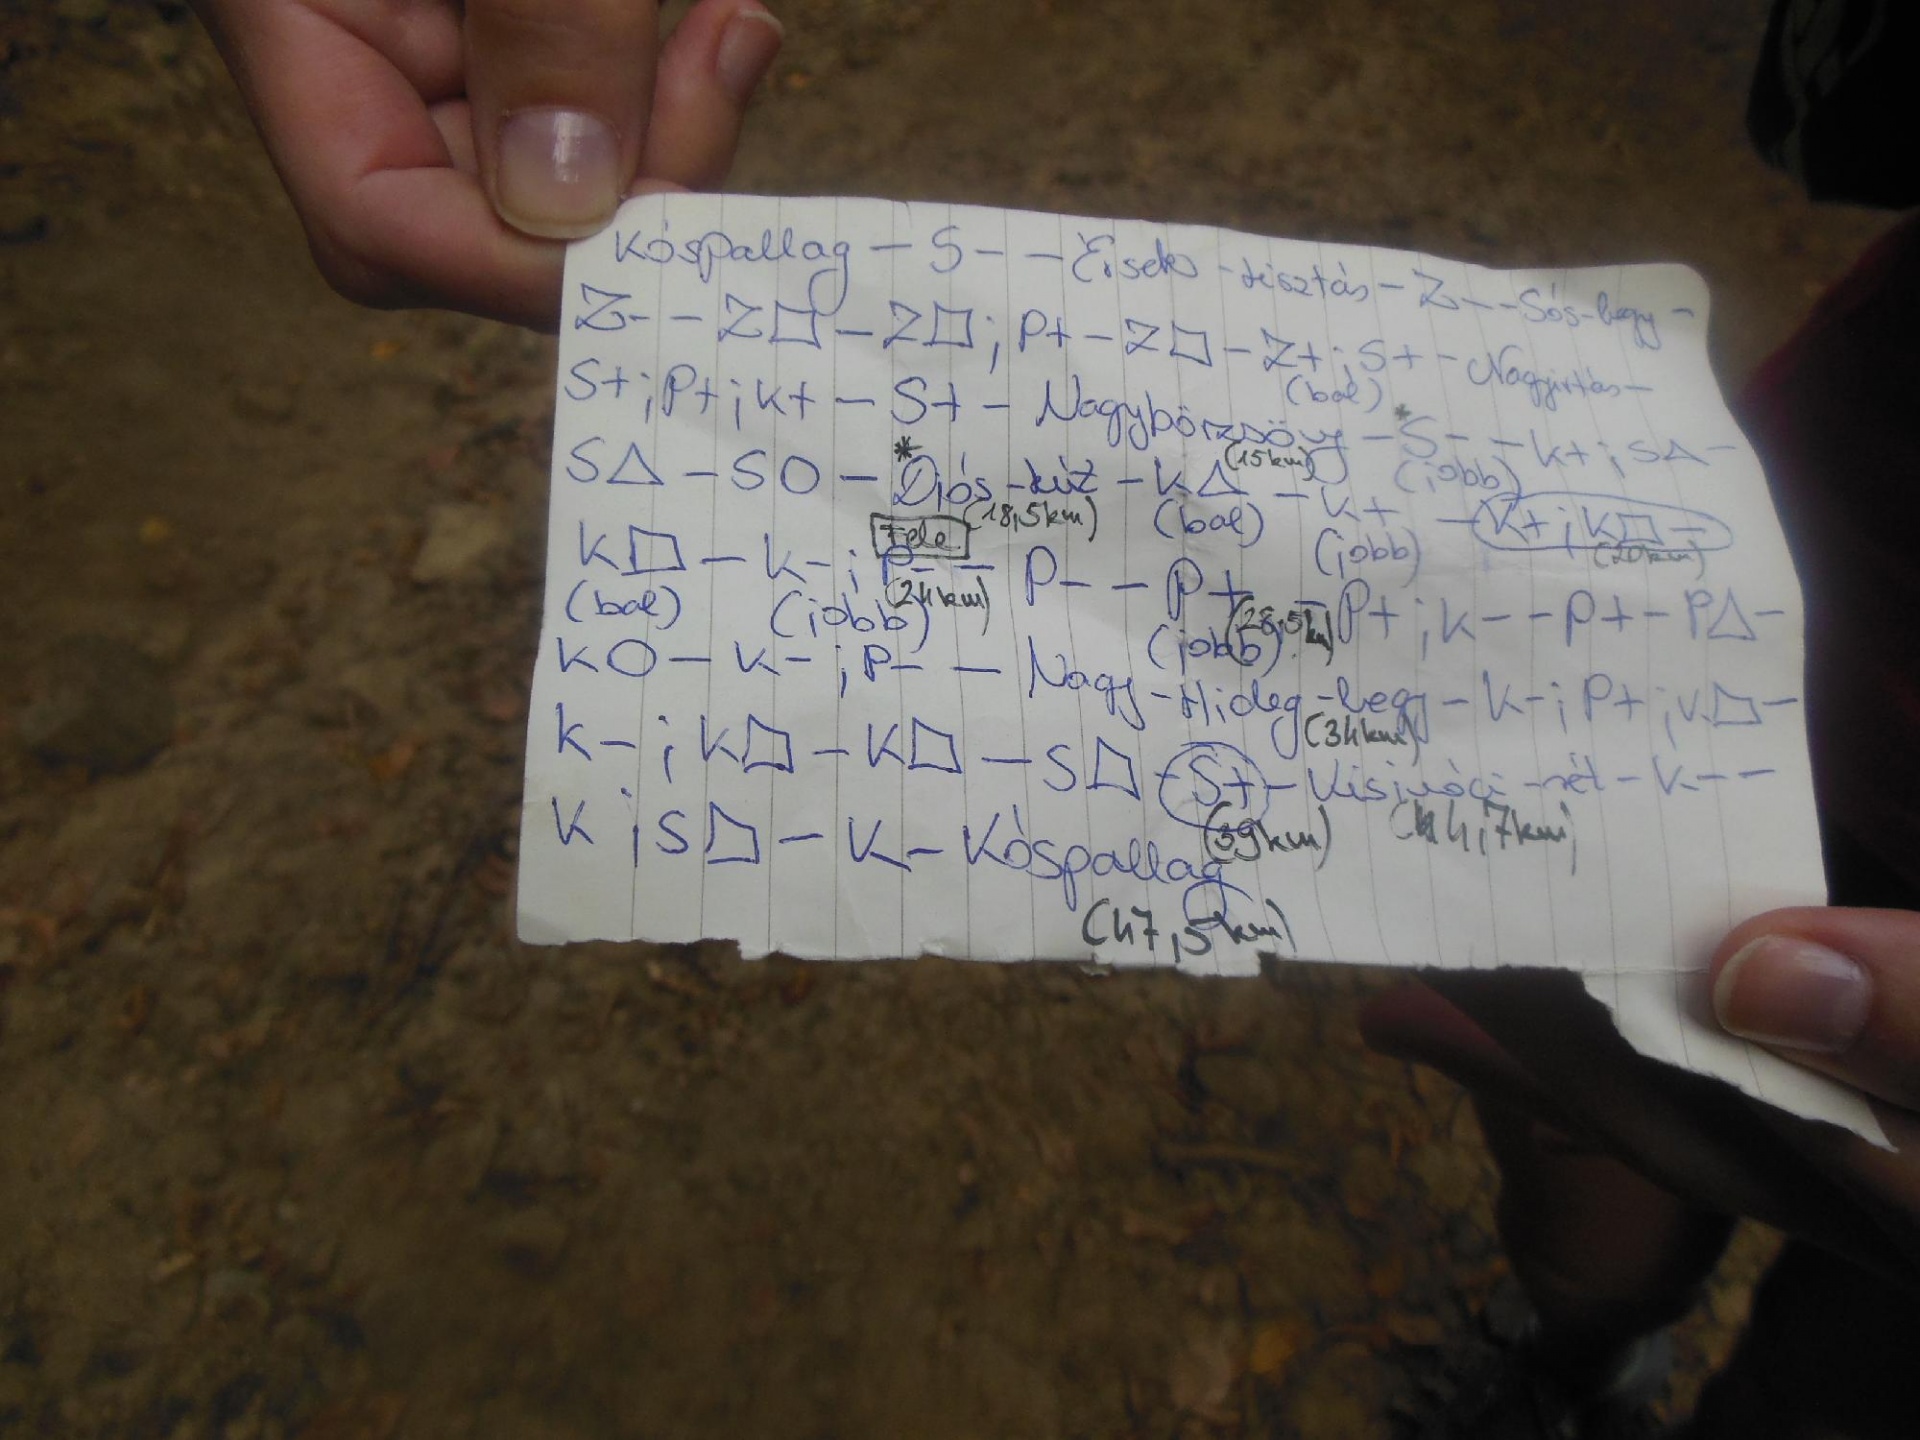 Kóspallag – S- – Érsek-tisztás – Z- – Sós-hegy –
Z- – Z□ – Z□; P+ – Z□ – Z+; S+ – Nagyirtás –
(bal)
S+; P+; K+ – S+ – Nagybörzsöny – S- – K+; SΔ –
(15km) * (jobb)
SΔ – SO – Diós-kút – KΔ – K+ – K+; K□ –
* (18,5km) (bal) (jobb) (20km)
Fele
K□ – K-; P- – P- – P+ – P+; K- – P+ – PΔ –
(bal) (jobb) (24km) (jobb) (28,5km)
KO – K-; P- – Nagy-Hideg-hegy – K-; P+; K□ –
(34km)
K-; K□ – K□ – S□ – S+ – Kisinóci-rét – K- –
(39km) (44,7km)
K; S□ – K – Kóspallag
(47,5km)